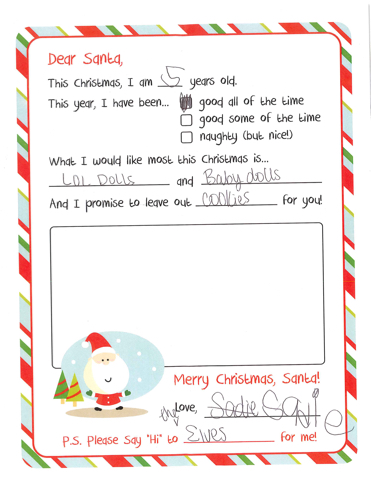 Dear Santa,
This Christmas, I am 5 years old.
This year, I have been... good all of the time
good some of the time
naughty (but nice!)
What I would like most this Christmas is...
LOL Dolls and Baby dolls
And I promise to leave out cookies for you!
Merry Christmas, Santa!
Love, Sadie
P.S. Please Say "Hi" to Elves for me!